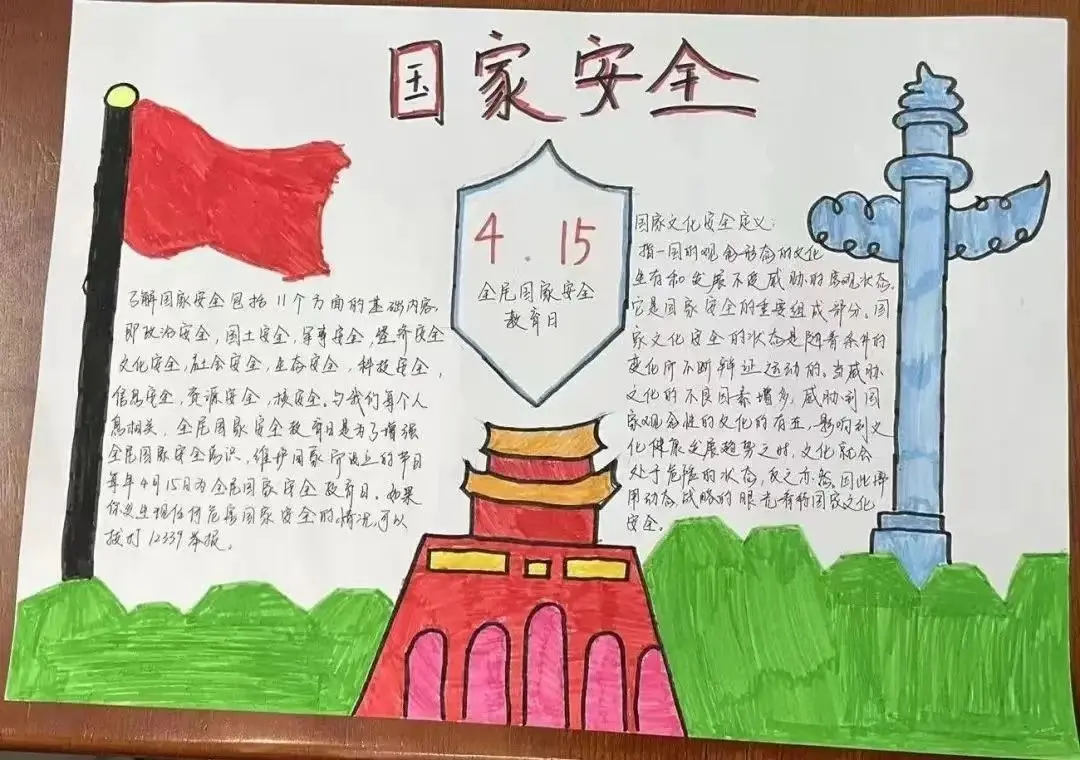 国家安全
4.15
全民国家安全
教育日
了解国家安全包括11个方面的基础内容,
即政治安全,国土安全,军事安全,经济安全
文化安全,社会安全,生态安全,科技安全,
信息安全,资源安全,核安全。与我们每个人
息相关,全民国家安全教育日是为了增强
全民国家安全意识,维护国家而设立的节日
每年4月15日为全民国家安全教育日。如果
你发生现任何危害国家安全的情况,可以
拨打12339举报。
国家文化安全定义:
指一国的观念形态的文化
生存和发展不受威胁的客观状态,
它是国家安全的重要组成部分。国
家文化安全的状态是随着条件的
变化而不断辩证运动的。当威胁
文化的不良因素增多,威胁到国
家观念性的文化的存在,影响到文
化健康发展趋势之时,文化就会
处于危险的状态,反之亦然。因此
用动态战略的眼光看待国家文化
安全。